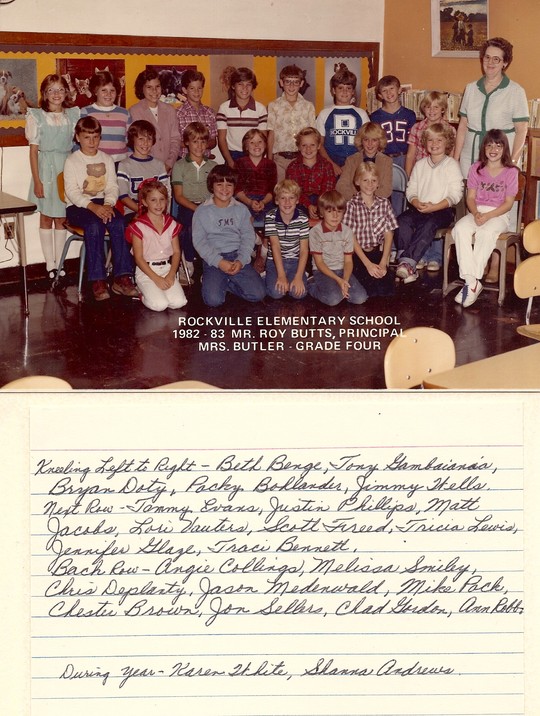 R
ROCKVILLE
35
ROCKVILLE ELEMENTARY SCHOOL
1982 - 83 MR. ROY BUTTS, PRINCIPAL
MRS. BUTLER - GRADE FOUR
Kneeling Left to Right - Beth Benge, Tony Gambaiana,
Bryan Doty, Packy Bohlander, Jimmy Wells.
Next Row - Tommy Evans, Justin Phillips, Matt
Jacobs, Lori Vauters, Scott Freed, Tricia Lewis,
Jennifer Glaze, Traci Bennett,
Back Row - Angie Collings, Melissa Smiley,
Chris Deplanty, Jason Medenwald, Mike Pack,
Chester Brown, Jon Sellers, Chad Gordon, Ann Robb,
During Year - Karen White, Shanna Andrews